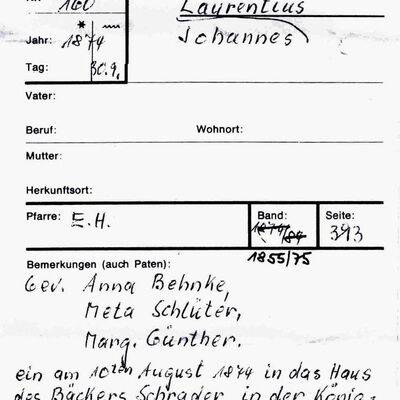 160
Laurentius
Jahr: 1874
Johannes
Tag: 30.9.
Vater:
Beruf: Wohnort:
Mutter:
Herkunftsort:
Pfarre: E.H. Band: 1874/84 Seite: 393
1855/75
Bemerkungen (auch Paten):
Gev. Anna Behnke,
Meta Schlüter,
Marg. Günther.
ein am 10ten August 1874 in das Haus
des Bäckers Schrader in der König=